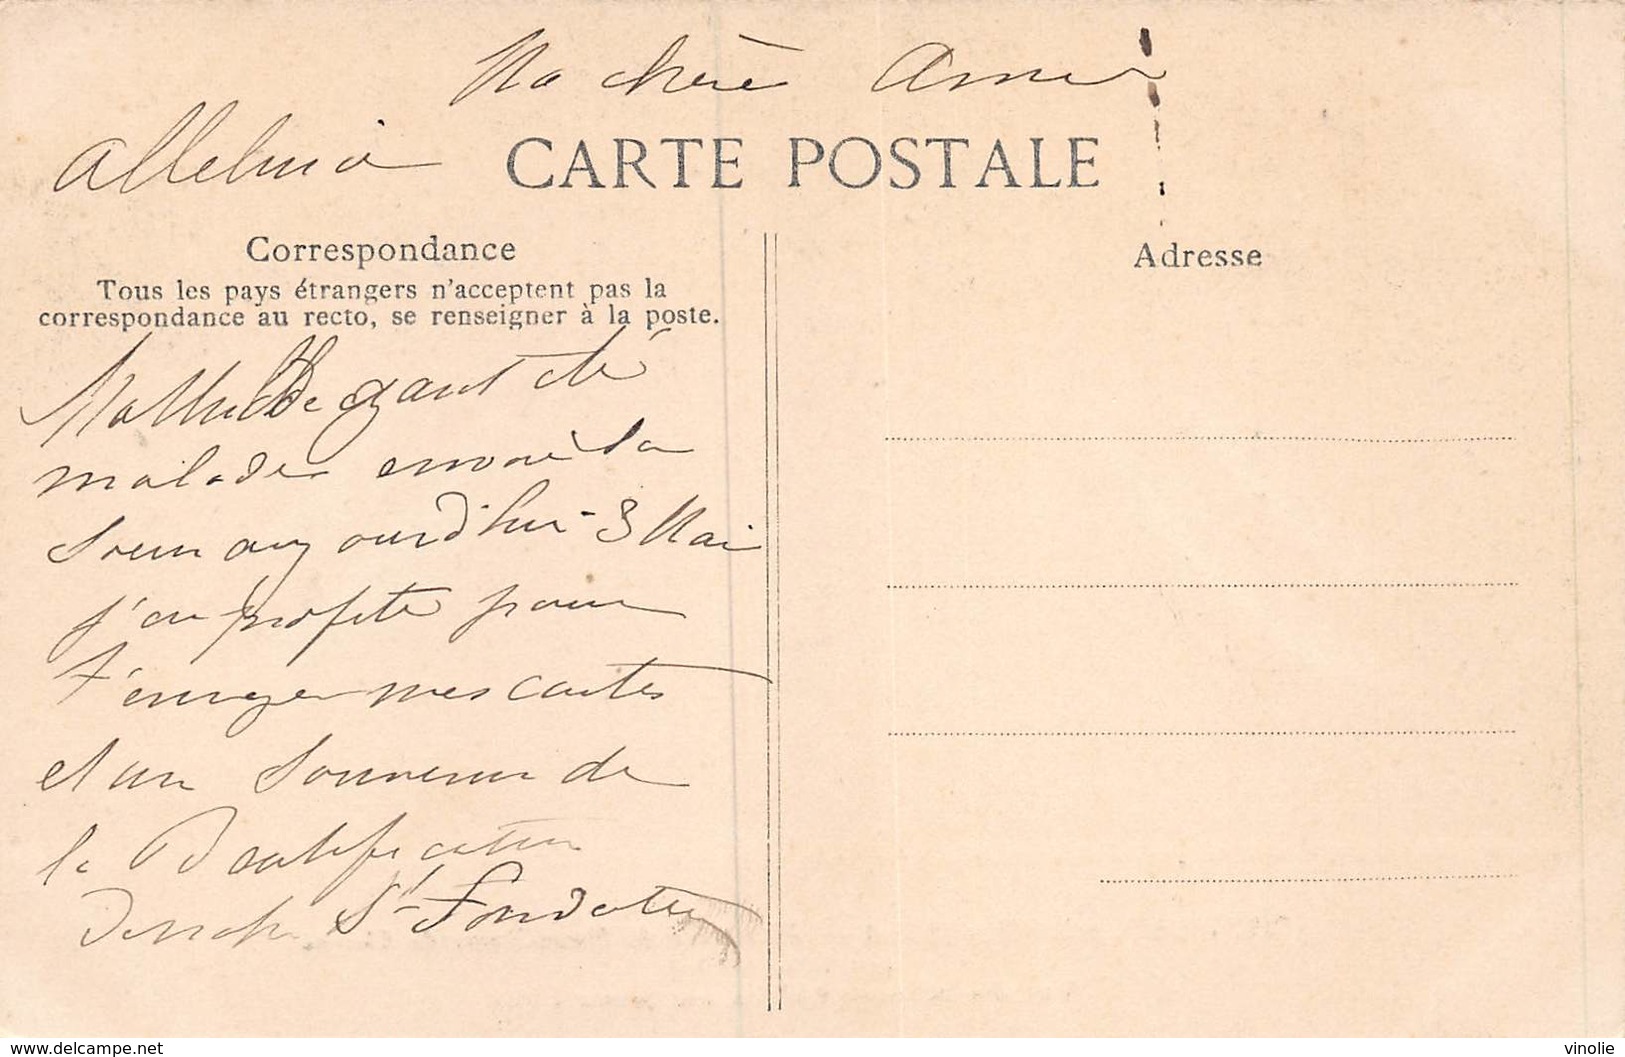 Ma chère Anna
alleluia
CARTE POSTALE
Correspondance
Tous les pays étrangers n'acceptent pas la
correspondance au recto, se renseigner à la poste.
Adresse
Mathilde ayant été
malade envoie sa
soeur aujourd'hui 3 Mai
j'en profite pour
t'envoyer mes cartes
et un souvenir de
la Béatification
de St Fondateur
www.delcampe.net
vinolie